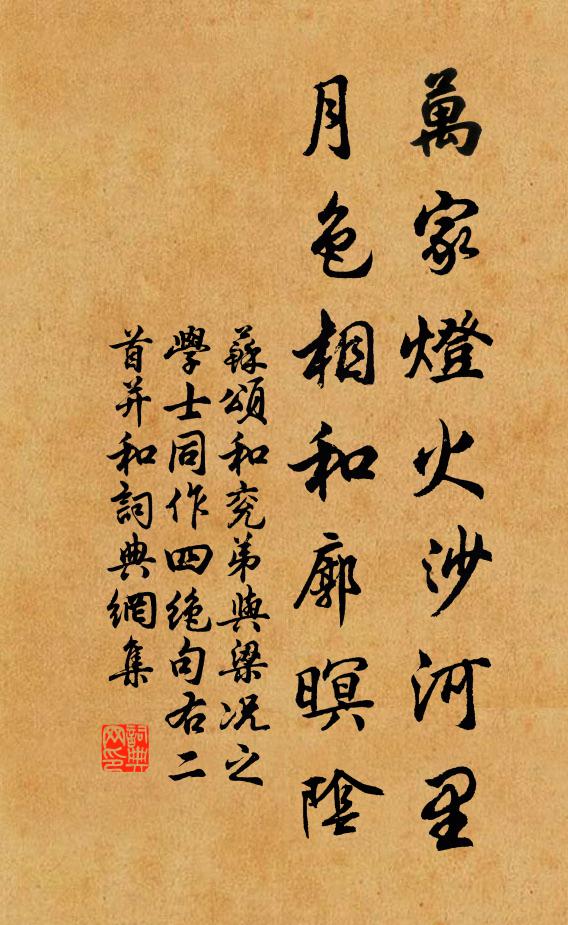 萬家燈火沙河里
月色相和廓暝陰
蘇頌和兖弟與梁况之
學士同作四絶句右二
首并和詞典網集
詞典網印